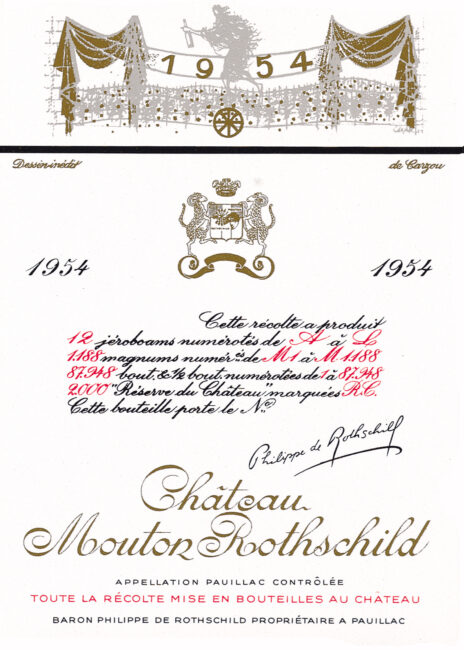 1954
Dessin inédit de Carzou
1954 1954
Cette récolte a produit
12 jéroboams numérotés de A à L
1.188 magnums numér.és de M1 à M1.188
87.948 bout. & ½ bout. numérotées de 1 à 87.948
2.000 "Réserve du Château" marquées R.C.
Cette bouteille porte le No
Philippe de Rothschild
Château
Mouton Rothschild
APPELLATION PAUILLAC CONTRÔLÉE
TOUTE LA RÉCOLTE MISE EN BOUTEILLES AU CHÂTEAU
BARON PHILIPPE DE ROTHSCHILD PROPRIÉTAIRE A PAUILLAC